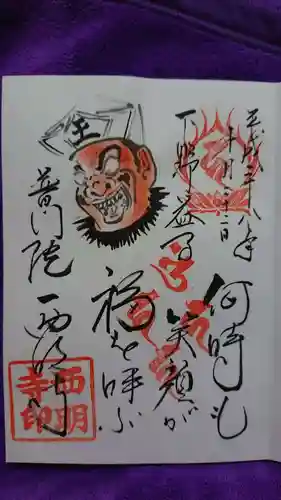 平成二十八年
十月二十三日
下野益子
何時も
笑顔が
福を呼ぶ
王
普門院
西明寺
西明
寺印